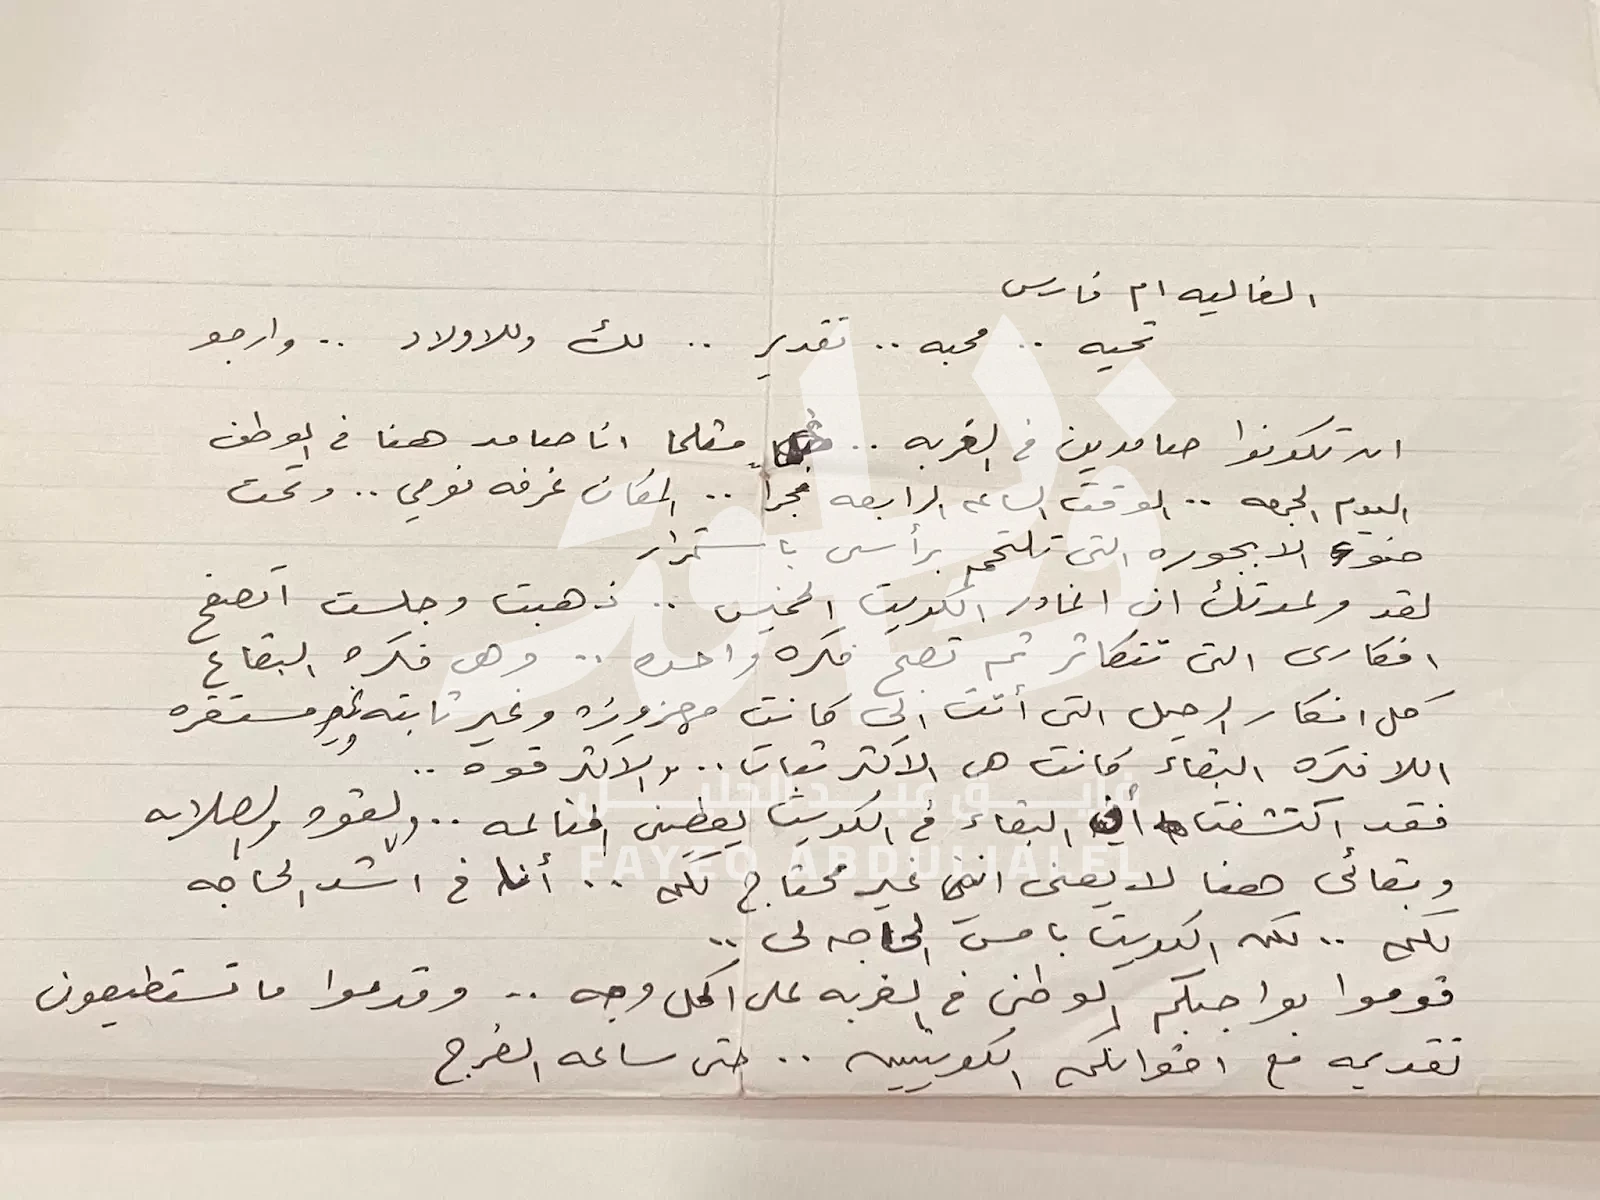 الغاليه ام فارس
تحيه .. محبه .. تقدير .. لك وللاولاد .. وارجو
ان تكونوا صامدين في الغربه .. مثلما انا صامد هنا في الوطن
اليوم الجمعه .. الوقت الساعه الرابعه فجراً .. المكان غرفه نومي .. وتحت
ضوء الابجوره التى تلتحم برأسى باستمرار
لقد وعدتك ان اغادر الكويت الخميس .. ذهبت وجلست اتصفح
افكارى التى تتكاثر ثم تصبح فكره واحده .. وهى فكره البقاء
كل افكار الرحيل التى أتت الى كانت مهزوزه وغير ثابته وغير مستقره
الا فكره البقاء كانت هى الاكثر ثبات .. والاكثر قوه ..
فقد اكتشفت أن البقاء في الكويت يعطينى المناعه .. والقوه والصلابه
وبقائى هنا لا يعنى اننى غير محتاج لكم .. أنا في اشد الحاجه
لكم .. لكن الكويت بامس الحاجه لى ..
قوموا بواجبكم الوطنى في الغربه على اكمل وجه .. وقدموا ما تستطيعون
تقديمه مع اخوانكم الكويتيين .. حتى ساعه الفرج
فايق عبدالجليل
FAYEQ ABDULJALEEL